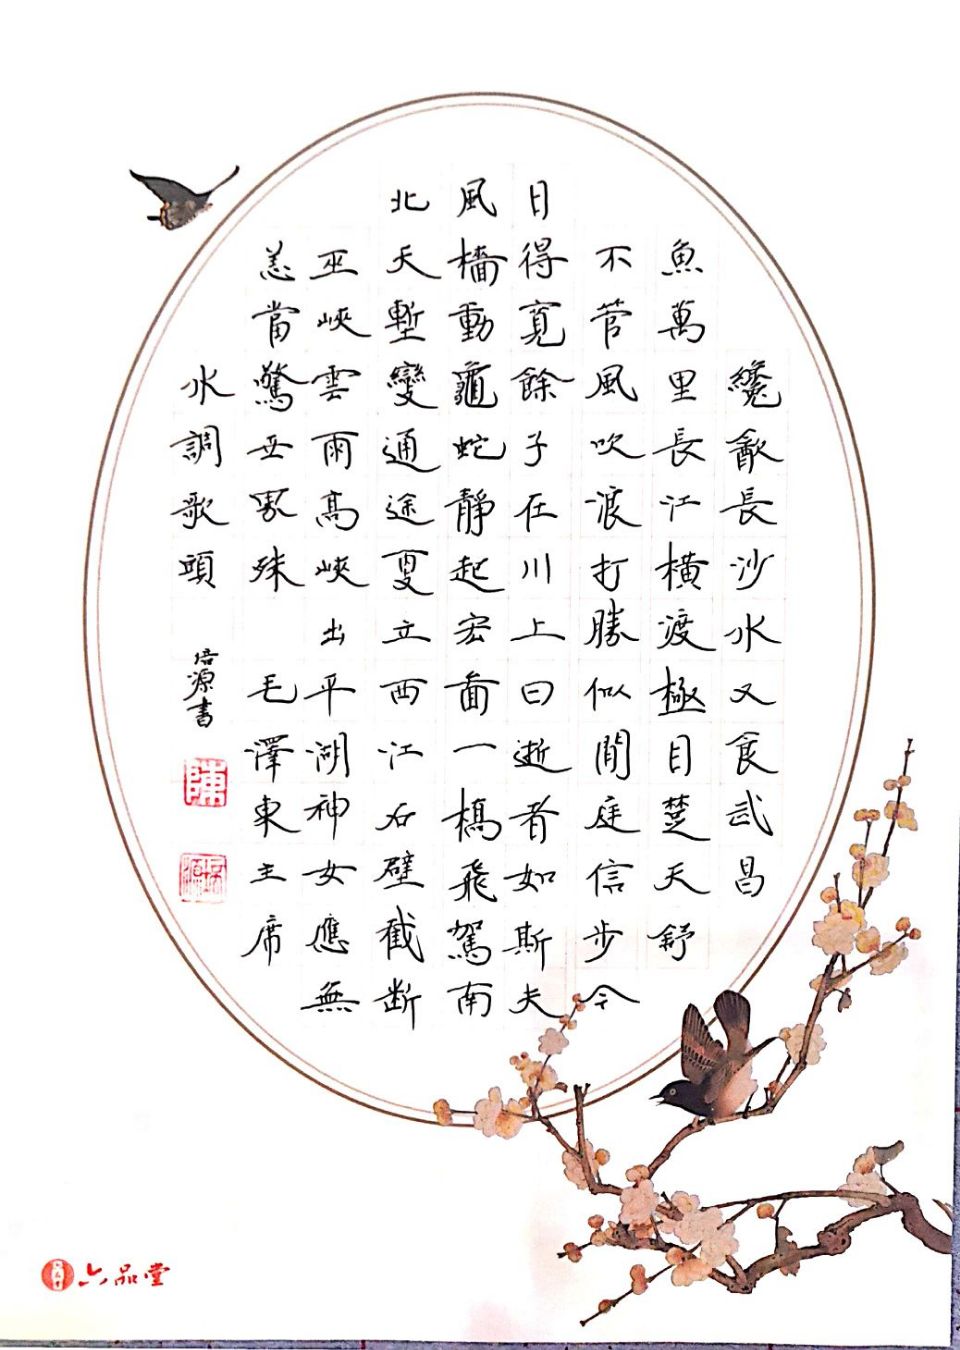 纔飲長沙水又食武昌
魚萬里長江橫渡極目楚天舒
不管風吹浪打勝似閒庭信步今
日得寬餘子在川上曰逝者如斯夫
風檣動龜蛇靜起宏圖一橋飛駕南
北天塹變通途更立西江石壁截斷
巫峽雲雨高峽出平湖神女應無
恙當驚世界殊 毛澤東主席
水調歌頭 培源書
陳
培源
六品堂